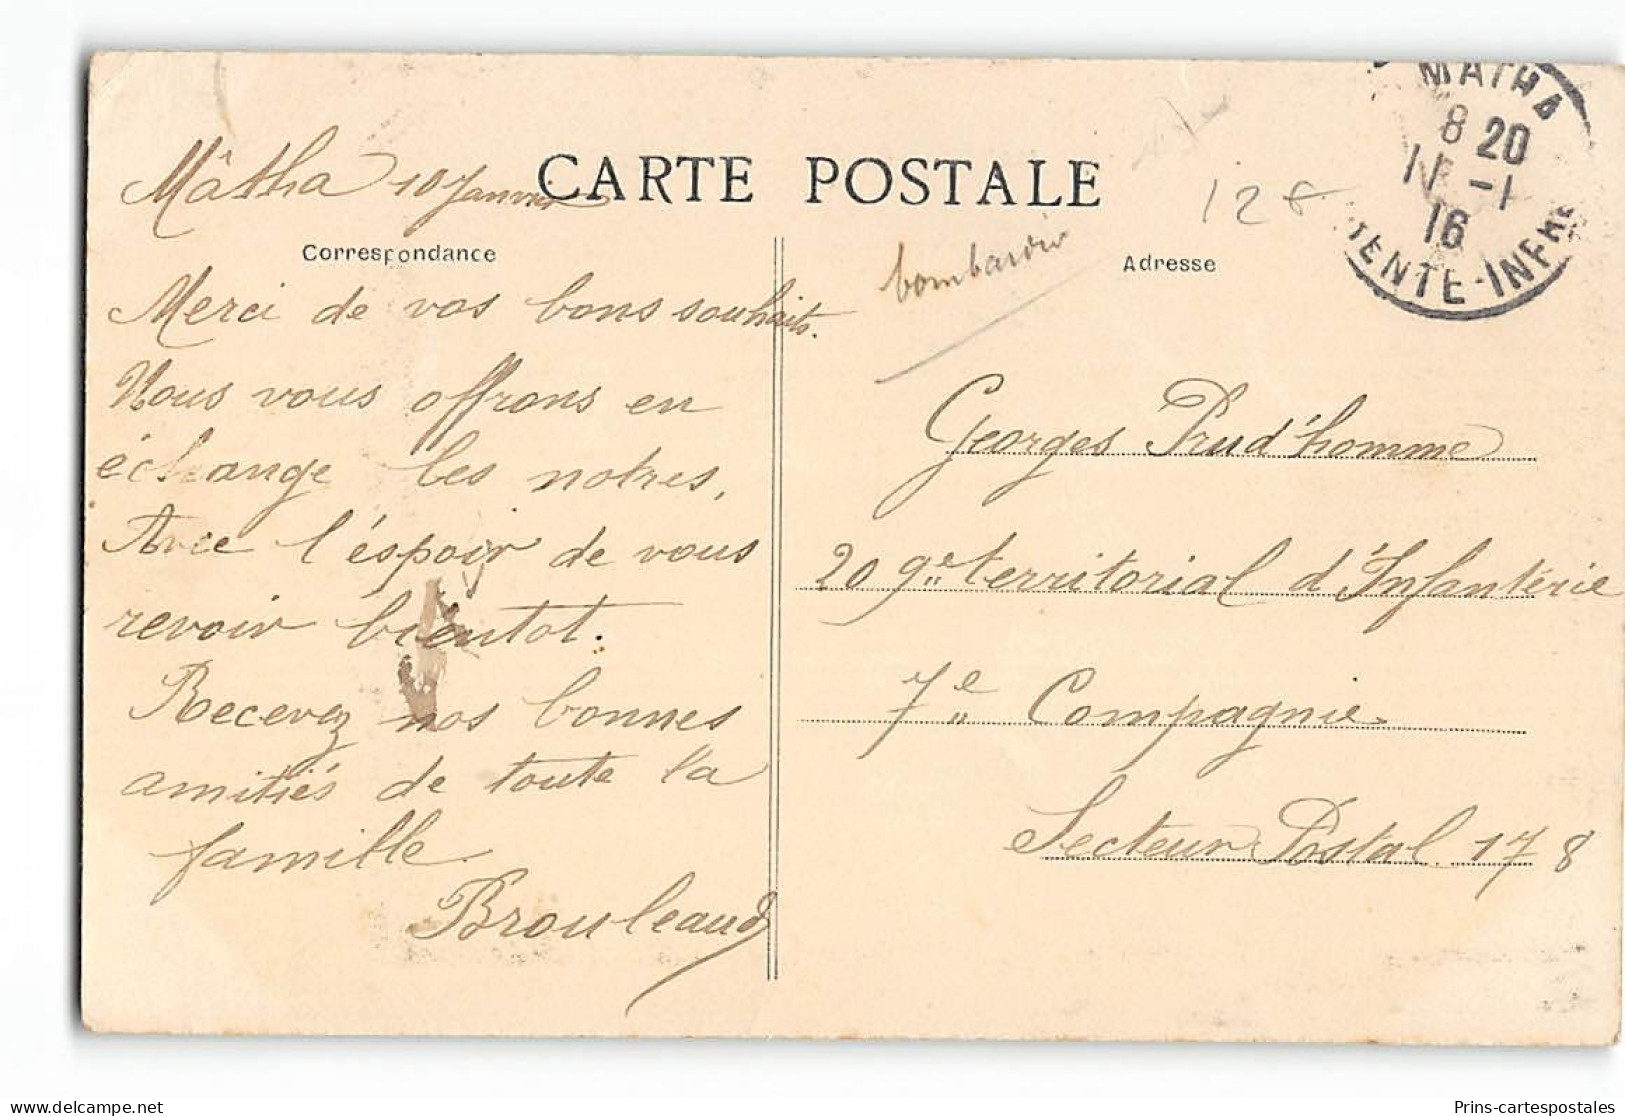 CARTE POSTALE
Mâtha 10 Janvier
Correspondance
Merci de vos bons souhaits.
Nous vous offrons en
échange les notres,
Avec l'éspoir de vous
revoir bientot.
Recevez nos bonnes
amitiés de toute la
famille.
Brouleaud
bombardier
12€
Adresse
MATHA
8 20
11 -1
16
ENTE-INFRE
Georges Prud'homme
209e territorial d'Infantérie
7e Compagnie
Secteur Postal. 178
Prins-cartespostales